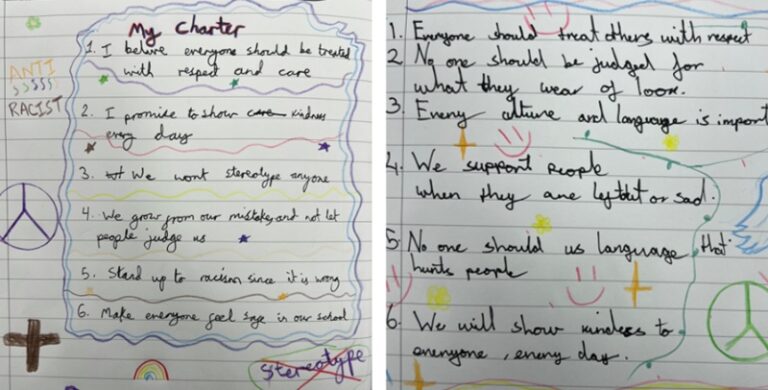 My Charter
1. I belive everyone should be treated
with respect and care
ANTI
RACIST
2. I promise to show care kindness
every day
3. We wont stereotype anyone
4. We grow from our mistakes, and not let
people judge us
5. Stand up to racism since it is wrong
6. Make everyone feel sage in our school
stereotype
1. Everyone should treat others with respect
2 No one should be judged for
what they wear of look.
3. Eveny culture and language is import
4. We support people
when they are left out or sad.
5. No one should us language that
hurts people
6. We will show kindess to
everyone, eveny day.